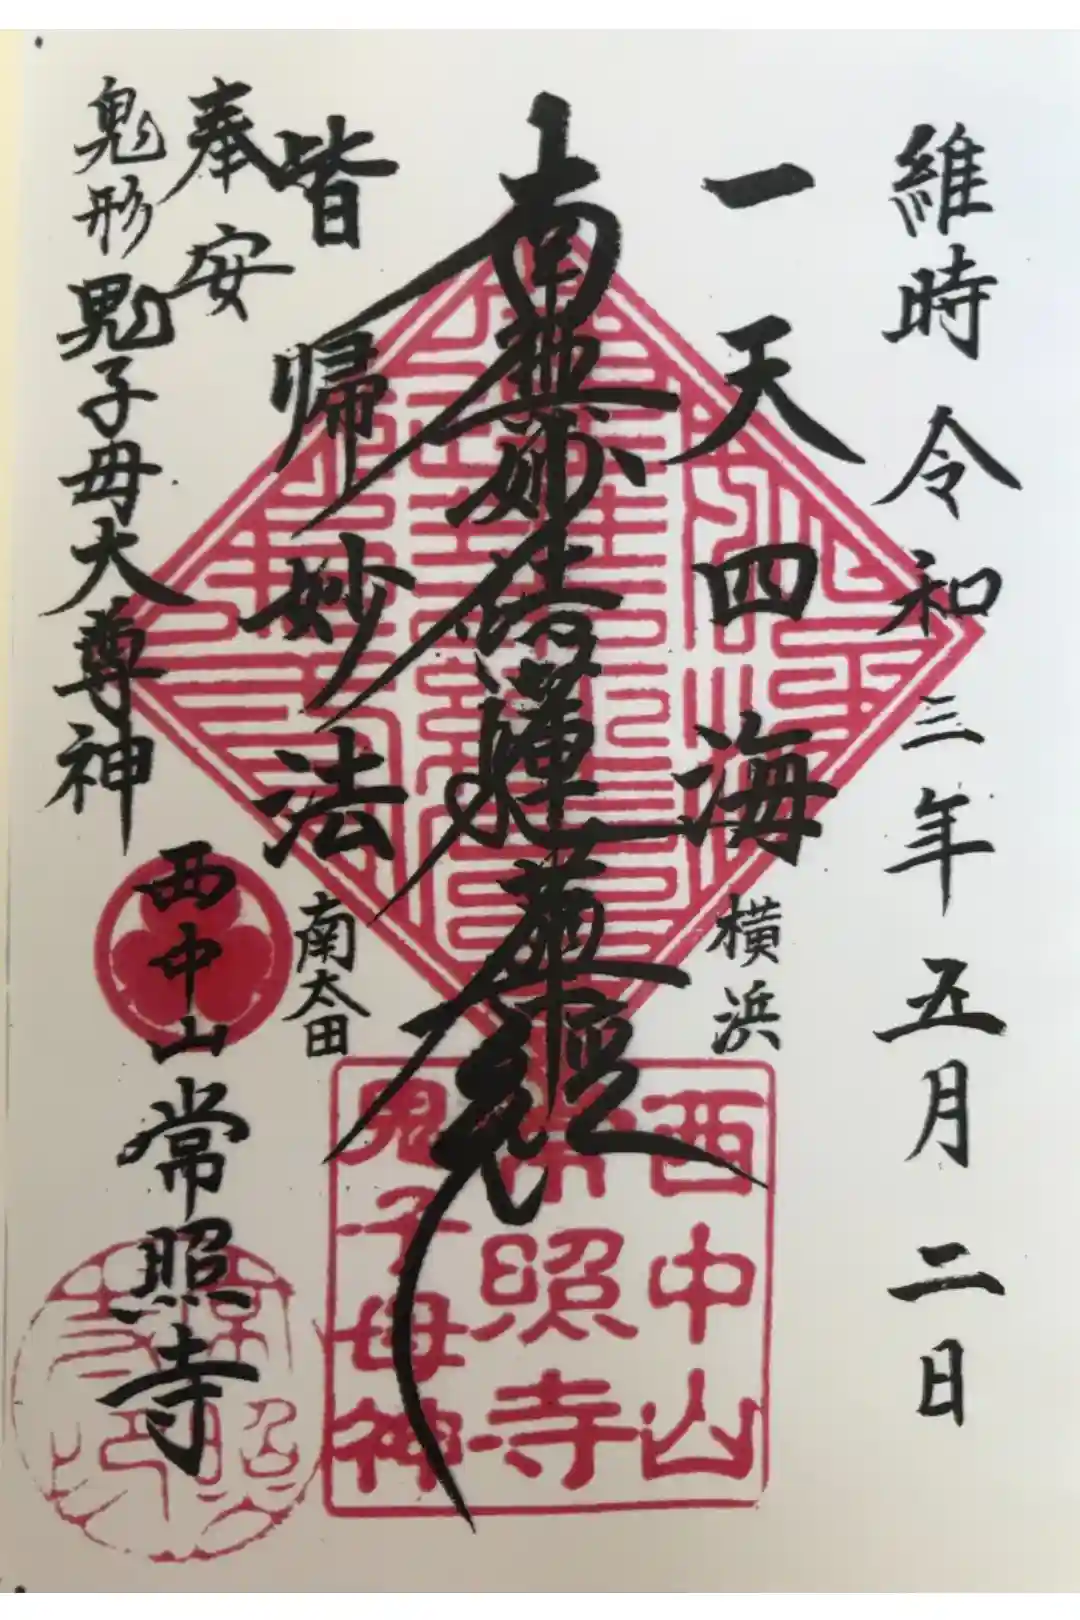 維時令和三年五月二日
一天四海
横浜
南無妙法蓮華經
皆帰妙法
南太田
奉安
鬼形鬼子母大尊神
西中山常照寺
西中山
常照寺
鬼子母神